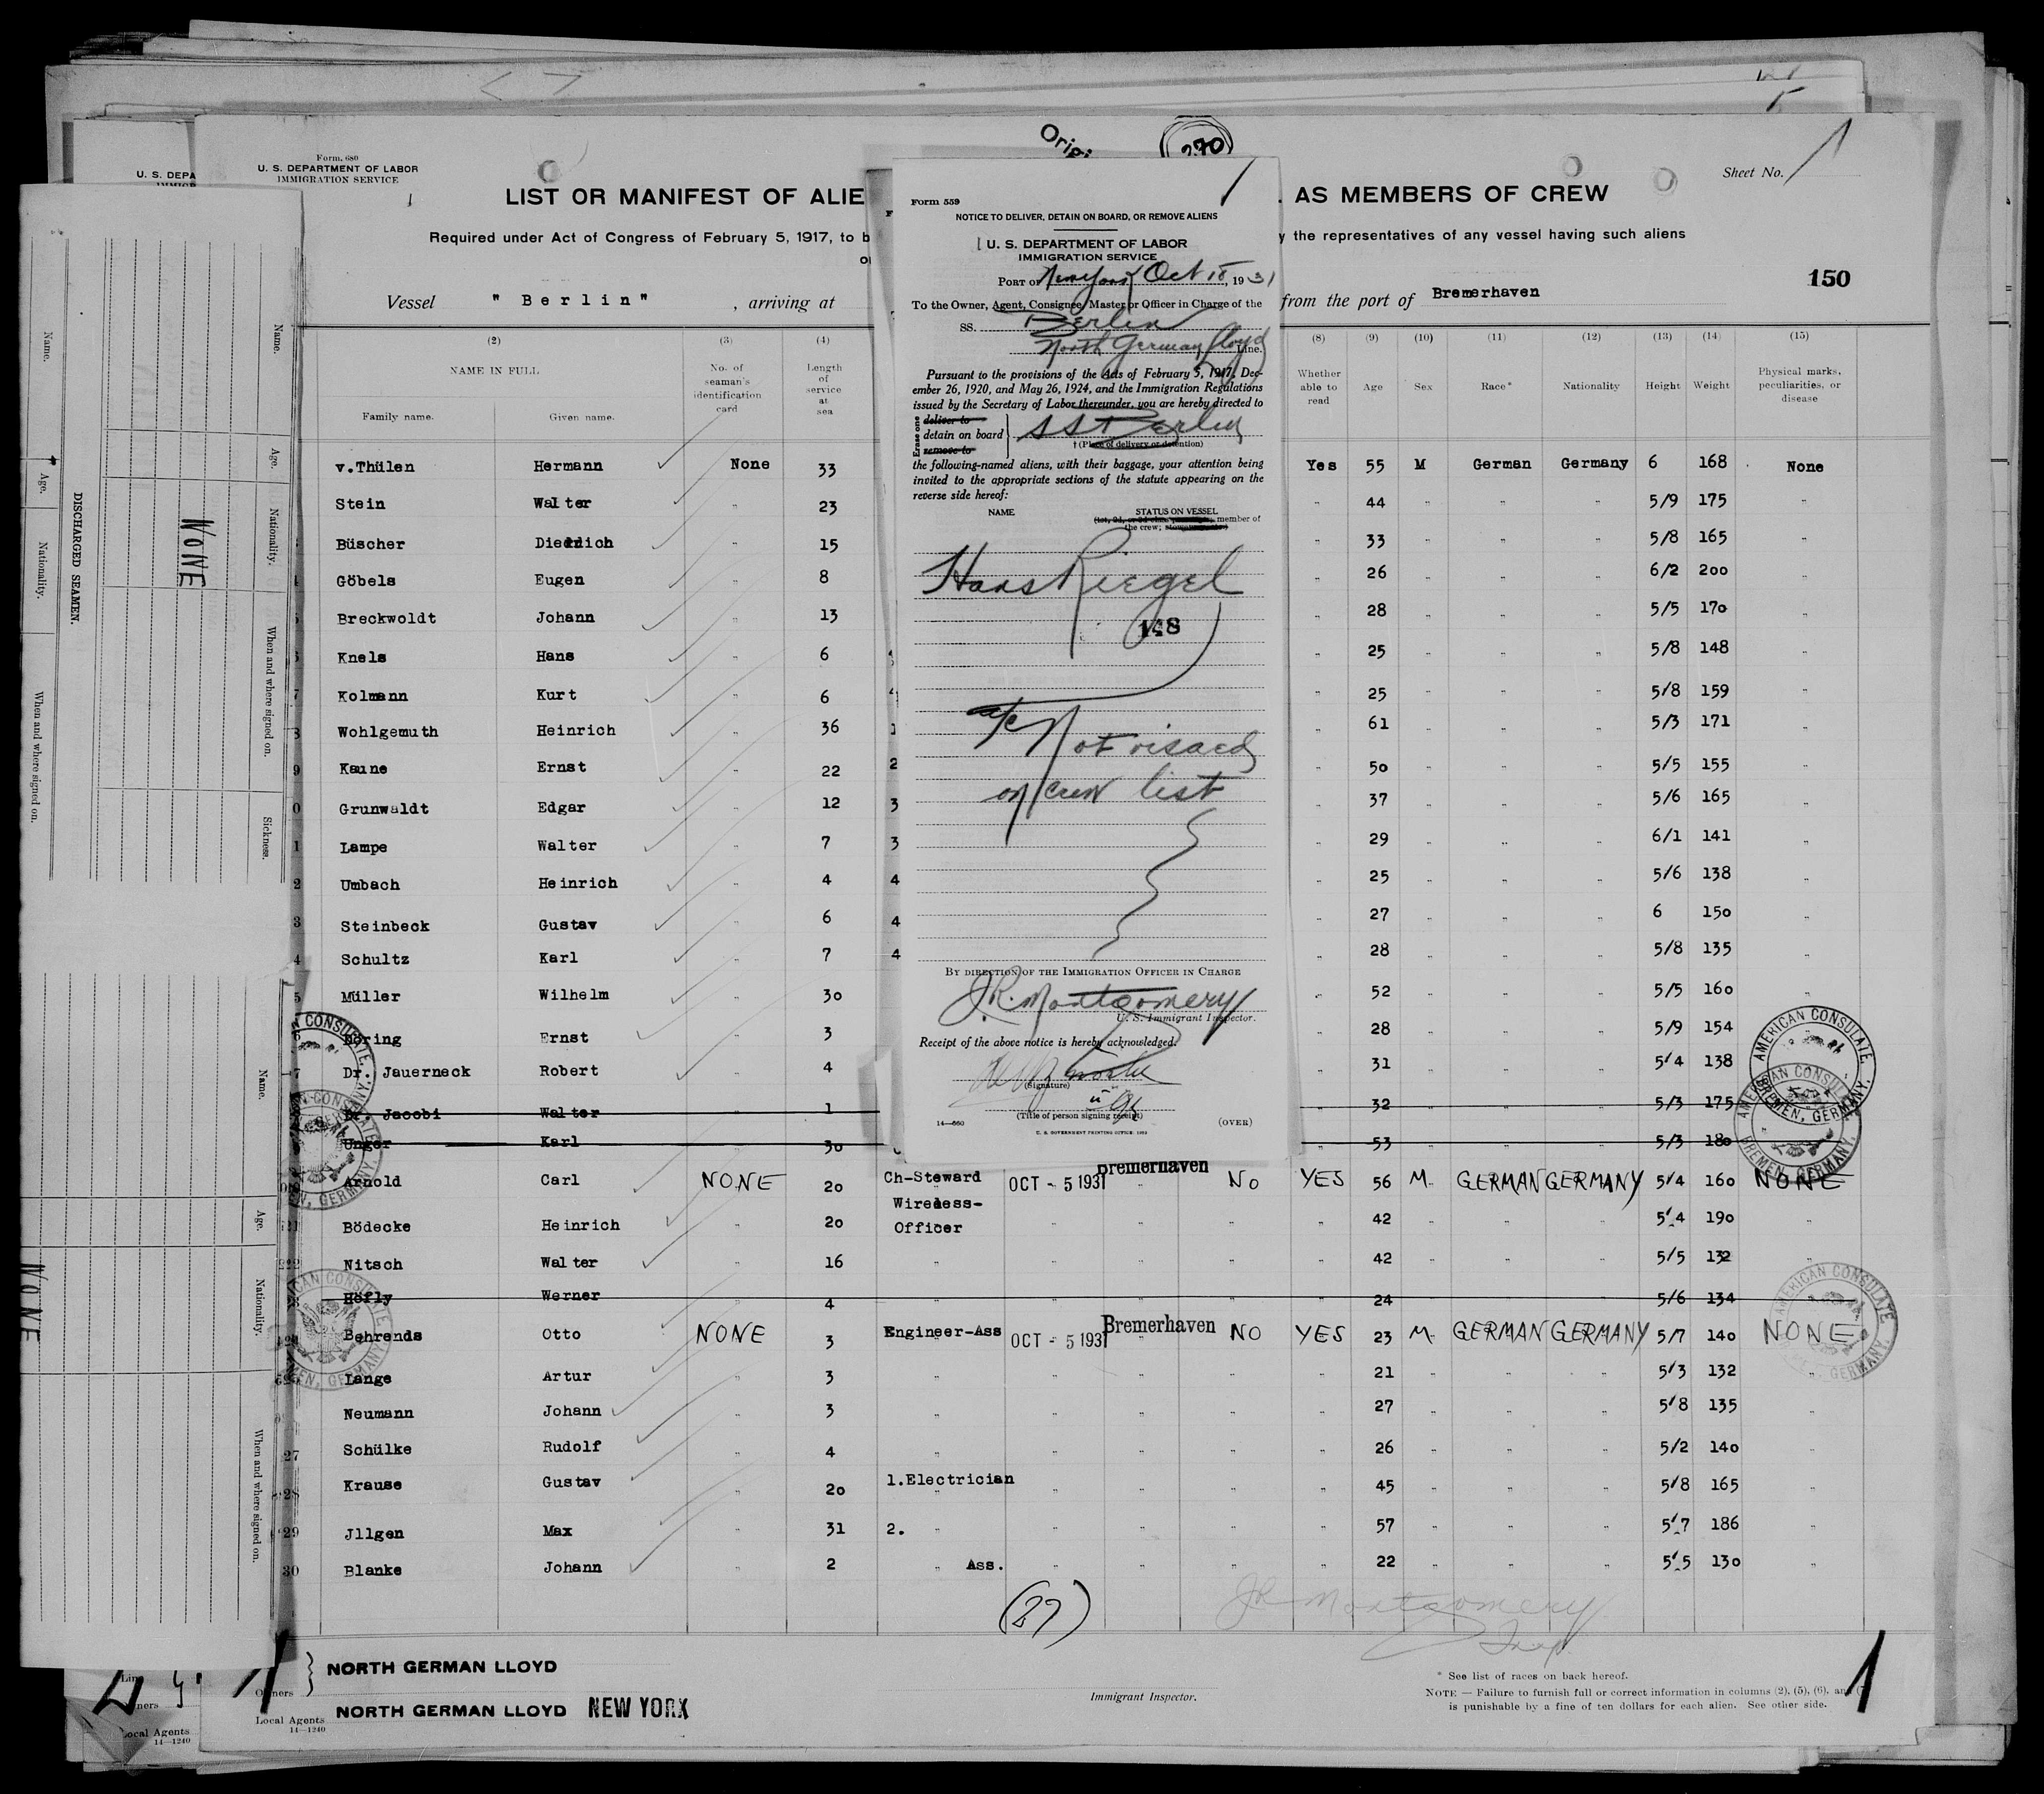 Form. 680
U. S. DEPARTMENT OF LABOR
IMMIGRATION SERVICE
U. S. DEPA
Origi
270
Sheet No. 1
LIST OR MANIFEST OF ALIE
AS MEMBERS OF CREW
Required under Act of Congress of February 5, 1917, to b
y the representatives of any vessel having such aliens
150
Vessel "Berlin" , arriving at
from the port of Bremerhaven
(2) (3) (4)
NAME IN FULL No. of seaman's identification card Length of service at sea
Family name. Given name.
(8) (9) (10) (11) (12) (13) (14) (15)
Whether able to read Age Sex Race* Nationality Height Weight Physical marks, peculiarities, or disease
v.Thülen Hermann None 33 Yes 55 M German Germany 6 168 None
Stein Walter " 23 " 44 " " " 5/9 175 "
Büscher Diedrich " 15 " 33 " " " 5/8 165 "
Göbels Eugen " 8 " 26 " " " 6/2 200 "
Breckwoldt Johann " 13 " 28 " " " 5/5 170 "
Knels Hans " 6 " 25 " " " 5/8 148 "
Kolmann Kurt " 6 " 25 " " " 5/8 159 "
Wohlgemuth Heinrich " 36 " 61 " " " 5/3 171 "
Kaune Ernst " 22 " 50 " " " 5/5 155 "
Grunwaldt Edgar " 12 " 37 " " " 5/6 165 "
Lampe Walter " 7 " 29 " " " 6/1 141 "
Umbach Heinrich " 4 " 25 " " " 5/6 138 "
Steinbeck Gustav " 6 " 27 " " " 6 150 "
Schultz Karl " 7 " 28 " " " 5/8 135 "
Müller Wilhelm " 30 " 52 " " " 5/5 160 "
Ernst " 3 " 28 " " " 5/9 154 "
Dr. Jauerneck Robert " 4 " 31 " " " 5/4 138
Dr. Jacobi Walter 1 32 5/3 175
Unger Karl 30 53 5/3 180
Arnold Carl NONE 20 Ch-Steward OCT - 5 1931 Bremerhaven " NO YES 56 M GERMAN GERMANY 5/4 160 NONE
Bödecke Heinrich " 20 Wireless-Officer " " " " " 42 " " " 5/4 190 "
Nitsch Walter " 16 " " " " " " 42 " " " 5/5 132 "
Höfly Werner 4 24 5/6 134
Behrends Otto NONE 3 Engineer-Ass OCT - 5 1931 Bremerhaven " NO YES 23 M GERMAN GERMANY 5/7 140 NONE
Lange Artur " 3 " " " " " " 21 " " " 5/3 132 "
Neumann Johann " 3 " " " " " " 27 " " " 5/8 135 "
27 Schülke Rudolf " 4 " " " " " " 26 " " " 5/2 140 "
28 Krause Gustav " 20 1.Electrician " " " " " 45 " " " 5/8 165 "
29 Jllgen Max " 31 2. " " " " " " 57 " " " 5/7 186 "
30 Blanke Johann " 2 " Ass. " " " " " 22 " " " 5/5 130 "
(27)
J R Montgomery
Insp.
Owners NORTH GERMAN LLOYD
Local Agents NORTH GERMAN LLOYD NEW YORK
14—1240
Immigrant Inspector.
* See list of races on back hereof.
NOTE — Failure to furnish full or correct information in columns (2), (5), (6), an
is punishable by a fine of ten dollars for each alien. See other side.
1
Form 559
NOTICE TO DELIVER, DETAIN ON BOARD, OR REMOVE ALIENS
U. S. DEPARTMENT OF LABOR
IMMIGRATION SERVICE
PORT OF New York Oct 15, 1931
To the Owner, Agent, Consignee, Master, or Officer in Charge of the
SS. Berlin
North German Lloyd Line.
Pursuant to the provisions of the Acts of February 5, 1917, Dec-
ember 26, 1920, and May 26, 1924, and the Immigration Regulations
issued by the Secretary of Labor thereunder, you are hereby directed to
Erase one deliver to
detain on board SS Berlin
remove to
†(Place of delivery or detention)
the following-named aliens, with their baggage, your attention being
invited to the appropriate sections of the statute appearing on the
reverse side hereof:
NAME STATUS ON VESSEL
member of
the crew;
Hans Riegel
148
a/c Not visaed
on crew list
BY DIRECTION OF THE IMMIGRATION OFFICER IN CHARGE
J.R. Montgomery
U. S. Immigrant Inspector.
Receipt of the above notice is hereby acknowledged.
(Signature)
(Title of person signing receipt)
14—560
U. S. GOVERNMENT PRINTING OFFICE: 1931
(OVER)
Name. Age. Nationality. When and where signed on.
DISCHARGED SEAMEN.
NONE
Name. Age. Nationality. When and where signed on. Sickness.
Name. Age. Nationality. When and where signed on.
NONE
AMERICAN CONSULATE, BREMEN, GERMANY.
AMERICAN CONSULATE, BREMEN, GERMANY.
AMERICAN CONSULATE, BREMEN, GERMANY.
Local Agents
14—1240